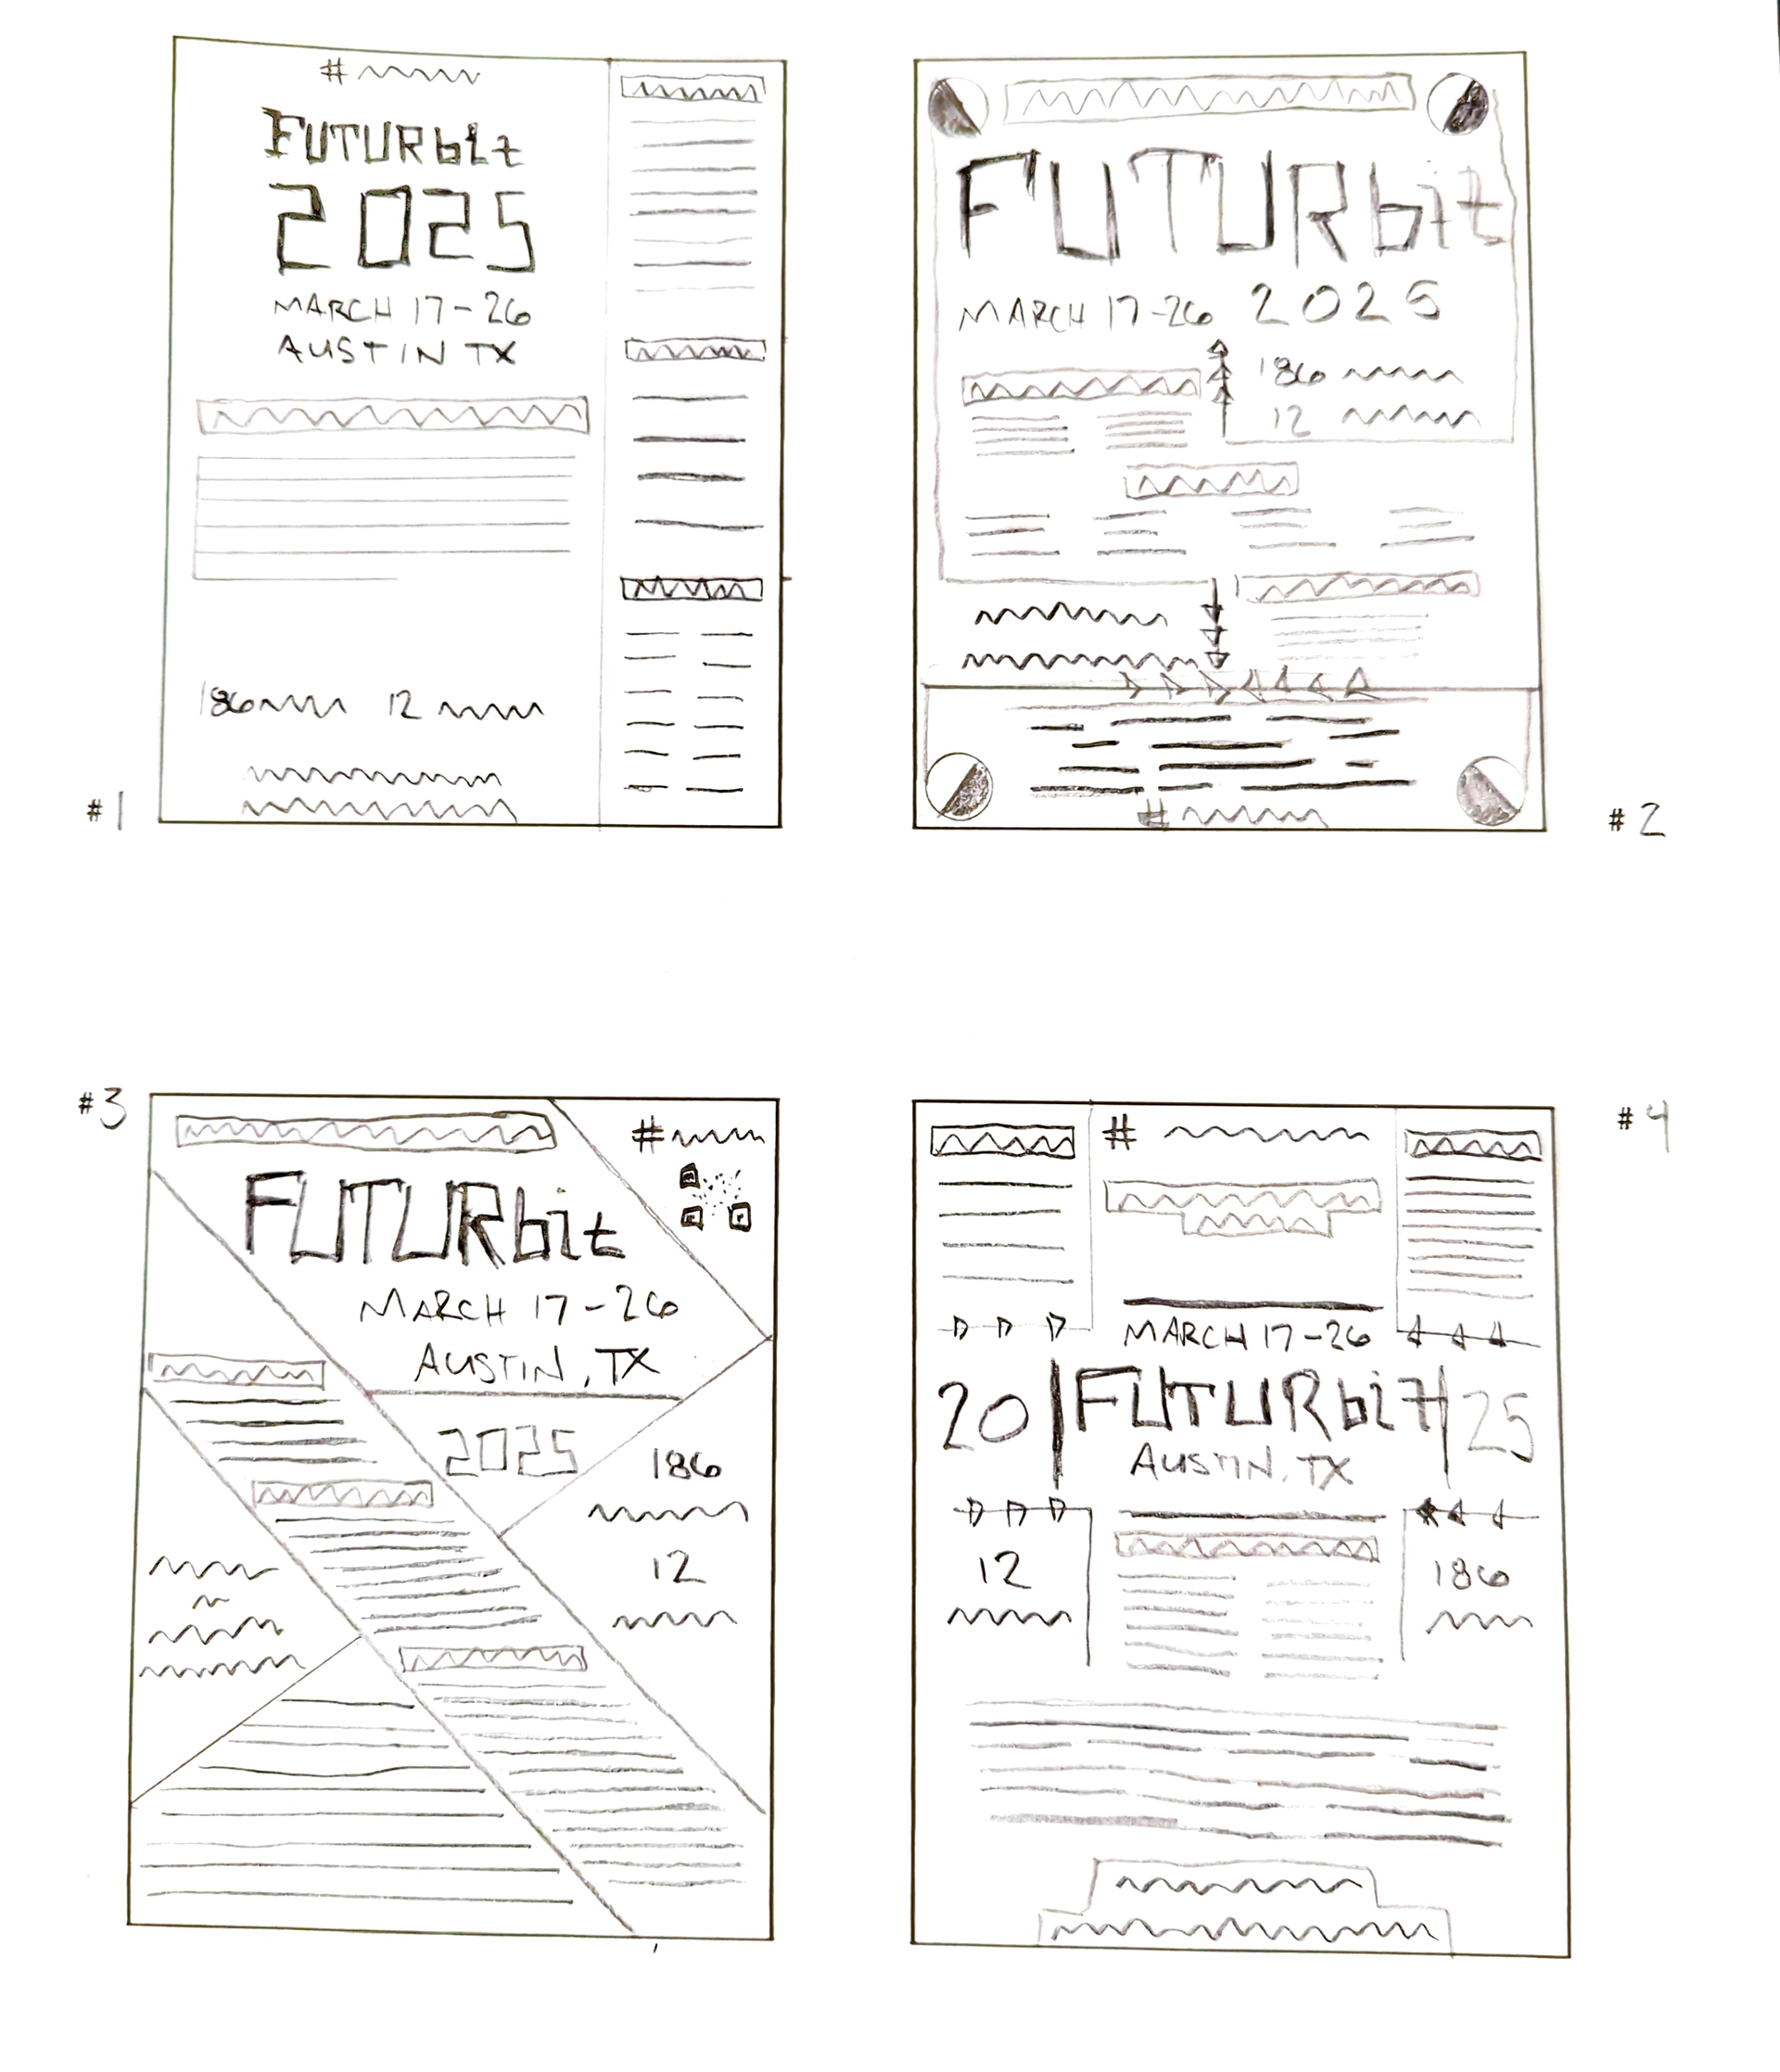 #
FUTURbit
2025
MARCH 17-26
AUSTIN TX
186 12
#1
FUTURbit
MARCH 17-26 2025
186
12
#
#2
#3
#
FUTURbit
MARCH 17-26
AUSTIN, TX
2025
186
12
#4
#
MARCH 17-26
20 | FUTURbit | 25
AUSTIN, TX
12 186